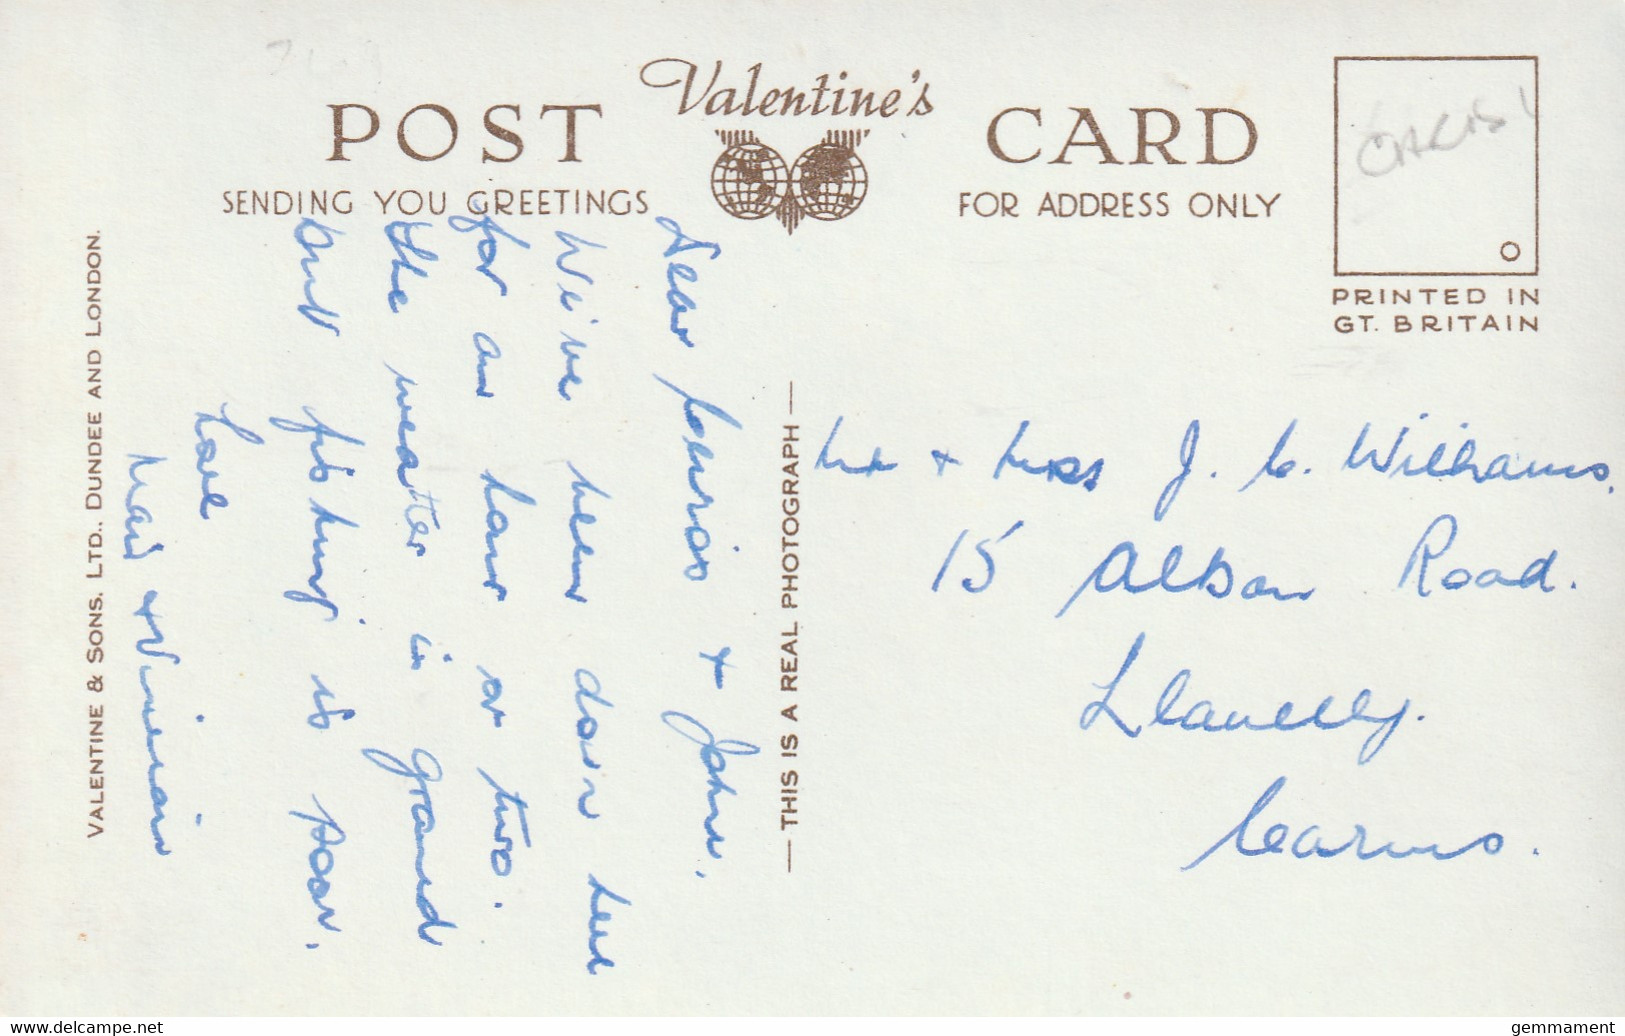 POST
Valentine's
CARD
SENDING YOU GREETINGS
FOR ADDRESS ONLY
PRINTED IN
GT. BRITAIN
VALENTINE & SONS. LTD., DUNDEE AND LONDON.
— THIS IS A REAL PHOTOGRAPH —
Dear & John.
We've been down here
for an hour or two.
the weather is grand
but fishing is poor.
Love
& Vivienne
Mr & Mrs J. C. Williams.
15 Alban Road.
Llanelly.
Carms.
www.delcampe.net
gemmament